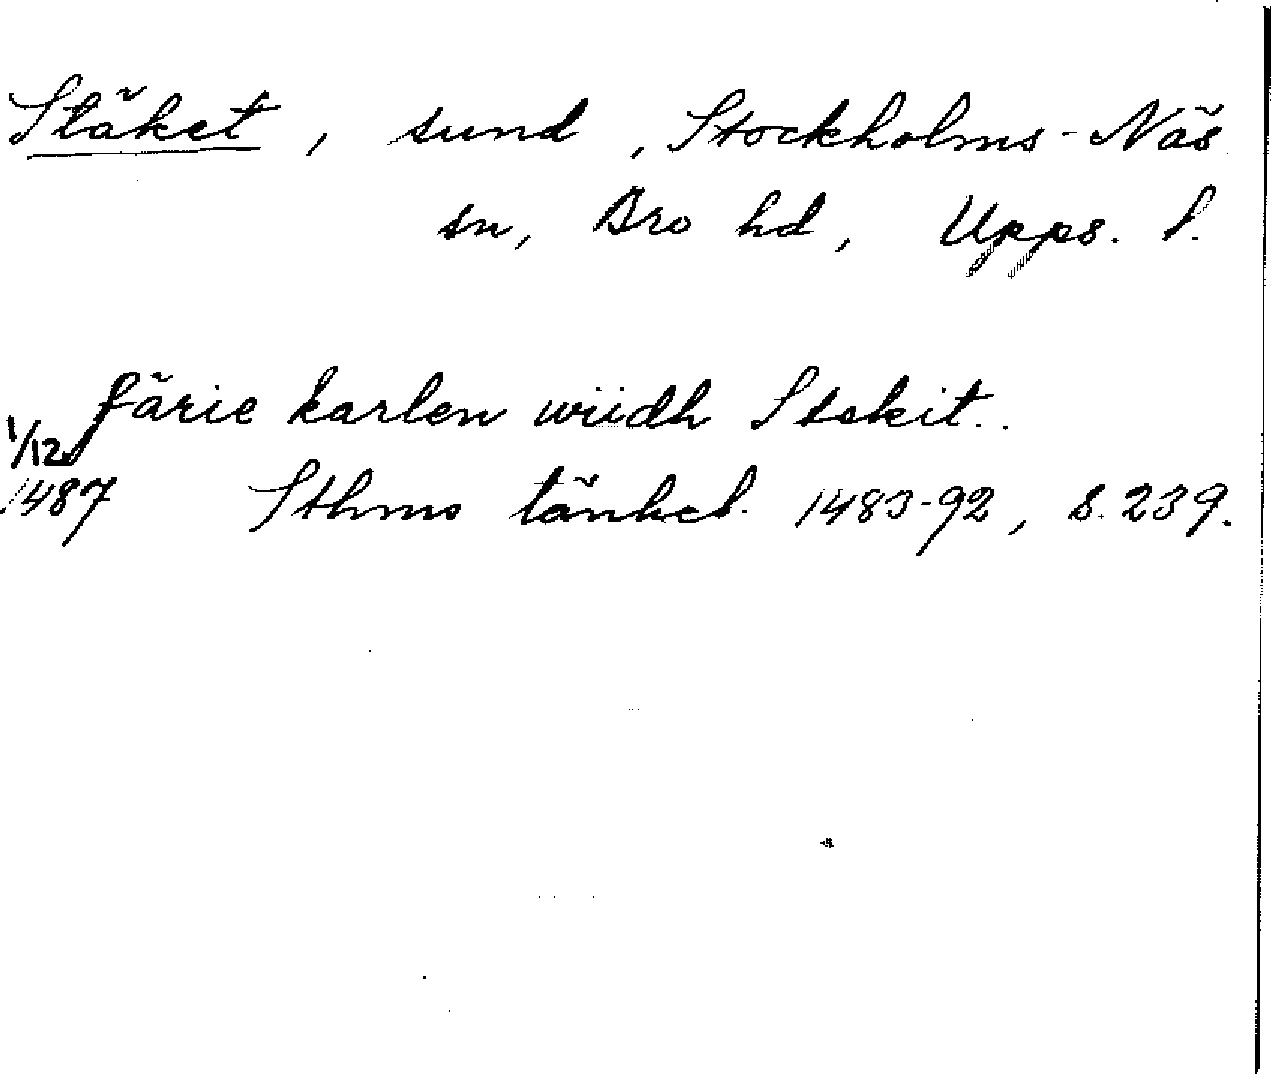 Stäket, sund, Stockholms-Näs
sn, Bro hd, Upps. l.
färie karlen wiidh Stekit..
1/12
1487 Sthms tänkeb. 1483-92, s. 239.